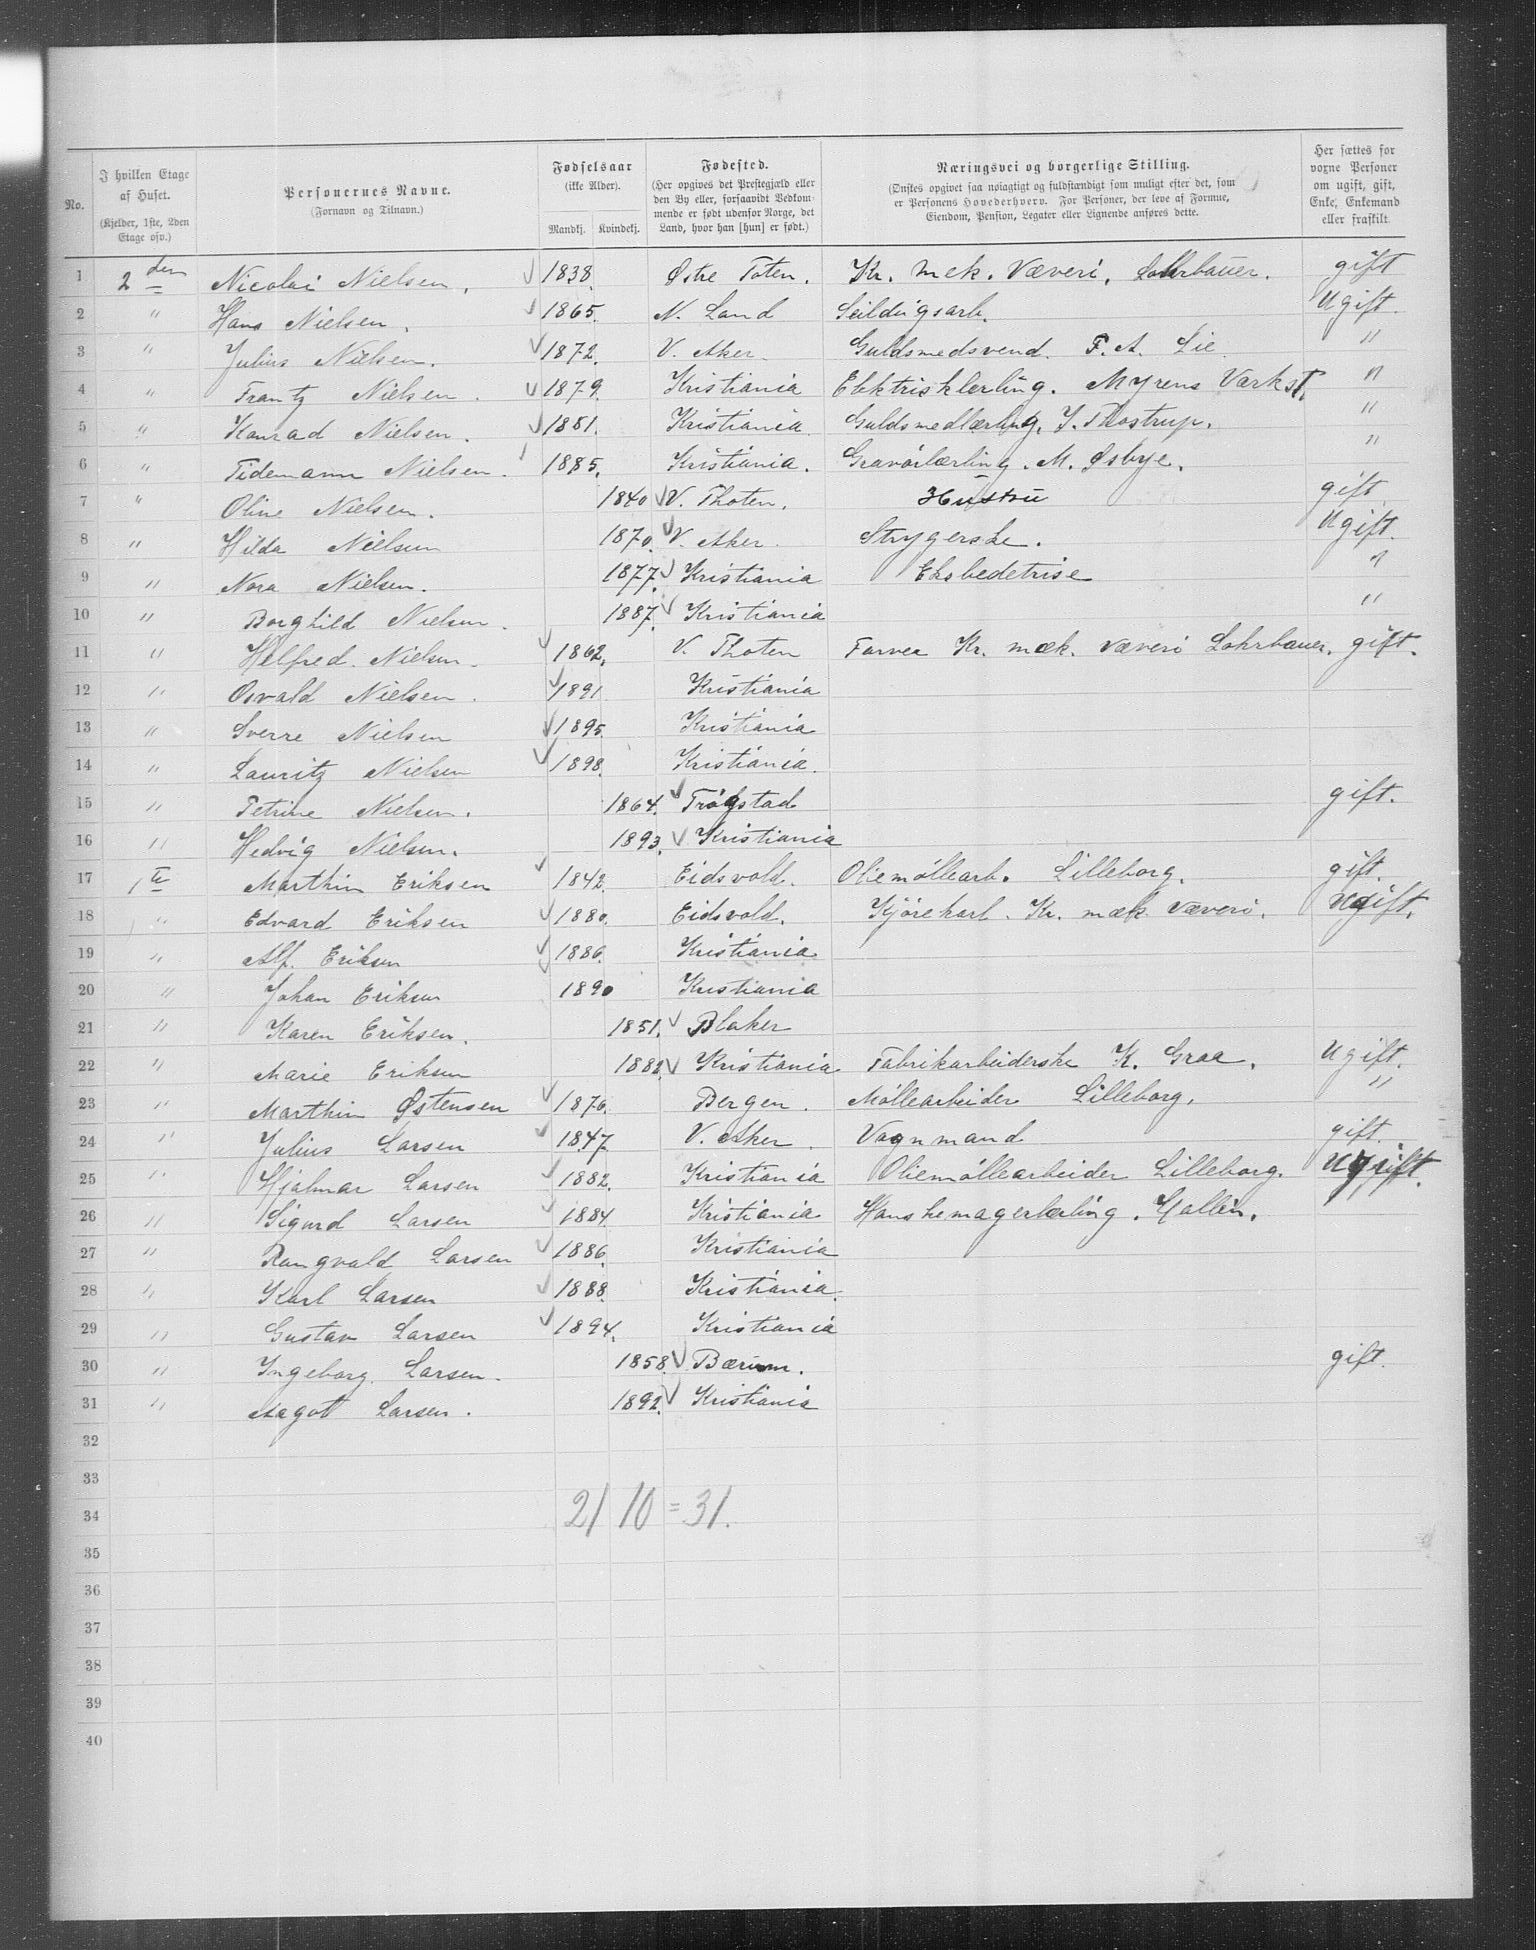 No. I hvilken Etage af Huset. (Kjelder, 1ste, 2den Etage osv.) Personernes Navne. (Fornavn og Tilnavn.) Fødselsaar (ikke Alder). Mandkj. Kvindekj. Fødested. (Her opgives det Prestegjæld eller den By eller, forsaavidt Vedkommende er født udenfor Norge, det Land, hvor han [hun] er født.) Næringsvei og borgerlige Stilling. (Ønskes opgivet saa nøiagtigt og fuldstændigt som muligt efter det, som er Personens Hovederhverv. For Personer, der leve af Formue, Eiendom, Pension, Legater eller Lignende anføres dette. Her sættes for voxne Personer om ugift, gift, Enke, Enkemand eller fraskilt.
1 2 den Nicolai Nielsen. 1838. Østre Toten. Kr. mek. Væveri, Lohrbauer. gift
2 " Hans Nielsen. 1865. N. Land Seildugsarb. Ugift.
3 " Julius Nielsen. 1872. V. Aker. Guldsmedsvend. F. A. Lie "
4 " Frantz Nielsen. 1879. Kristiania Elektrisklerling. Myrens Værkst. "
5 " Konrad Nielsen. 1881. Kristiania Guldsmedlærling, J. Thostrup. "
6 " Tidemann Nielsen. 1885. Kristiania. Gravörlærling. M. Øsbye. "
7 " Oline Nielsen. 1840 V. Thoten. Hustru gift
8 " Hilda Nielsen 1870. V. Aker. Strygerske. Ugift.
9 " Nora Nielsen. 1877. Kristiania Eksbedetrise "
10 " Borghild Nielsen. 1887. Kristiania "
11 " Helfred. Nielsen. 1862. V. Thoten Farver Kr. mæk. væveri Lohrbauer. gift.
12 " Osvald Nielsen. 1891 Kristiania
13 " Sverre Nielsen 1895. Kristiania
14 " Lauritz Nielsen 1898. Kristiania.
15 " Petrine Nielsen. 1864. Trögstad gift.
16 " Hedvig Nielsen. 1893. Kristiania
17 1 te Marthin Eriksen 1842. Eidsvold. Oliemöllearb. Lilleborg. gift.
18 " Edvard Eriksen 1880. Eidsvold. Kjörekarl. Kr. mæk. væveri. Ugift.
19 " Alf. Eriksen 1886. Kristiania
20 " Johan Eriksen 1890 Kristiania
21 " Karen Eriksen. 1851. Blaker
22 " Marie Eriksen 1882. Kristiania Fabrikarbeiderske K. Graa. Ugift.
23 " Marthin Østensen 1876. Bergen. Möllearbeider Lilleborg. "
24 " Julius Larsen 1847. V. Aker. Vognmand gift.
25 " Hjalmar Larsen 1882. Kristiania Oliemöllearbeider Lilleborg. Ugift.
26 " Sigurd Larsen 1884 Kristiania Hanskemagerlærling. Gallin.
27 " Rangvald Larsen 1886. Kristiania
28 " Karl Larsen 1888. Kristiania.
29 " Gustav Larsen 1894. Kristiania
30 " Ingeborg. Larsen. 1858. Bærum. gift.
31 " Aagot Larsen. 1892. Kristiania
32
33
34 21 10 = 31.
35
36
37
38
39
40